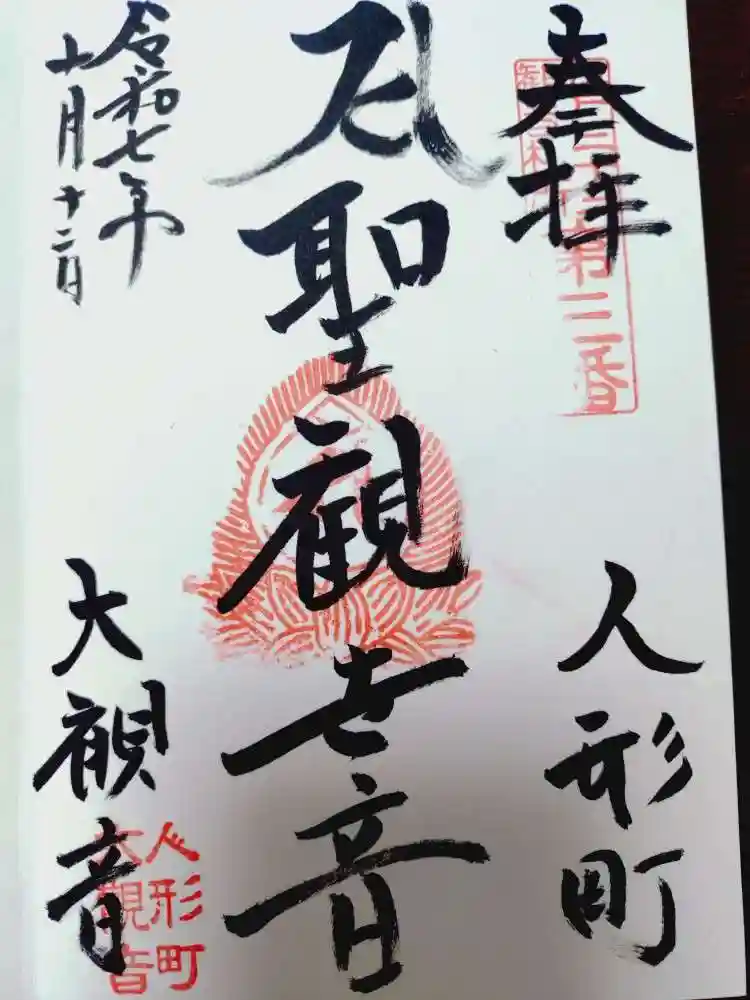 奉拝
第三番
人形町
聖觀世音
令和七年
十月十二日
大観音
人形町
大觀音